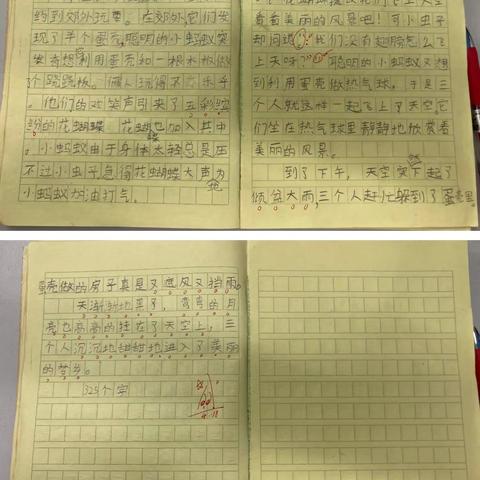 约到郊外玩耍。在郊外它们发
现了半个蛋壳,聪明的小蚂蚁突
发奇想利用蛋壳和一根木板做
了个跷跷板。俩人玩得不亦乐乎
。他们的欢笑声引来了五彩缤
纷的花蝴蝶 花蝴也加入其中
小蚂蚁由于身体太轻总是压
不过小虫子急得花蝴蝶大声为
小蚂蚁加油打气。
看看美丽的风景吧!可小虫子
却问道:我们没有翅膀怎么飞
上天呀?聪明的小蚂蚁又想
到利用蛋壳做热气球。于是三
个人就这样一起飞上了天空它
们坐在热气球里静静地欣赏着
美丽的风景。
到了下午,天空突下起了
倾盆大雨,三个人赶忙躲到了蛋壳里
蛋壳做的房子真是又遮风又挡雨。
天渐渐地黑了,弯弯的月
亮也高高的挂在了天空上,三
个人沉沉地甜甜地进入了美丽
的梦乡。
325个字